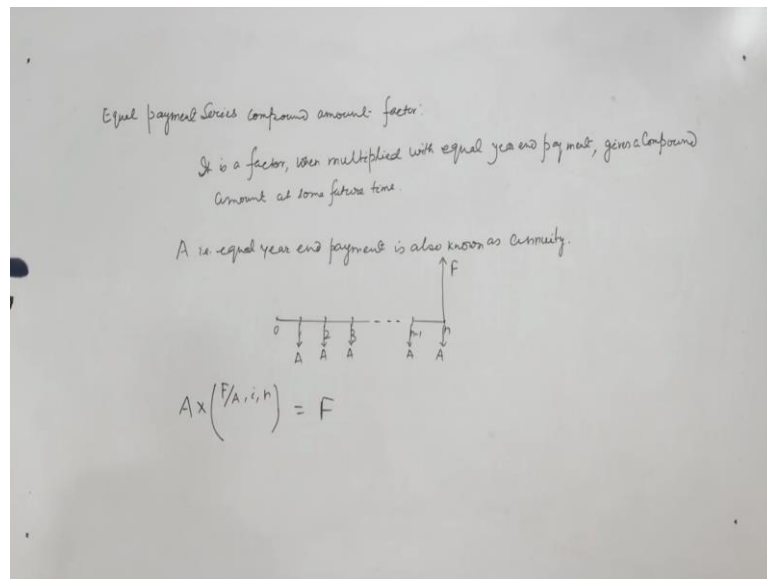 Equal payment Series compound amount factor:
It is a factor, when multiplied with equal year end payment, gives a Compound
amount at some future time.
A i.e. equal year end payment is also known as annuity.
F
0 1 2 3 --- n-1 n
A A A A A
A × (F/A, i, n) = F